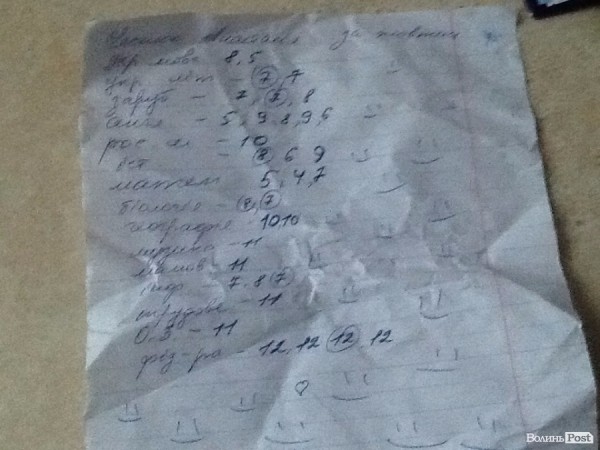 за жовтень
укр мова 8, 5
укр літ - 7, 7
заруб - 7, 7, 8
англ - 5, 9, 8, 9, 6
рос м - 10
іст - 8, 6, 9
матем 5, 4, 7
біологія - 8, 7
географія - 10 10
музика - 11
11
інф - 7, 8 7
трудове - 11
О.З - 11
фіз-ра - 12, 12 12, 12
ВолиньPost